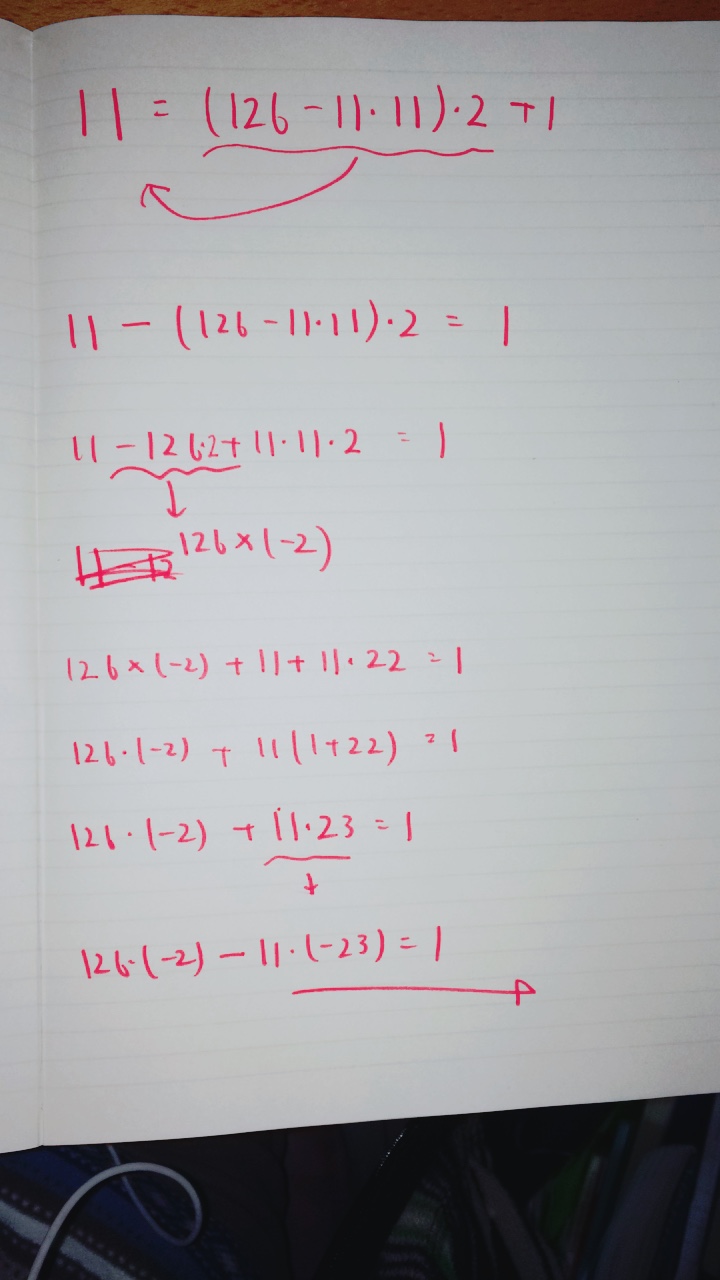 11 = (126 - 11·11)·2 + 1
11 - (126 - 11·11)·2 = 1
11 - 126·2 + 11·11·2 = 1
126 × (-2)
126 × (-2) + 11 + 11·22 = 1
126·(-2) + 11(1+22) = 1
126·(-2) + 11·23 = 1
126·(-2) - 11·(-23) = 1